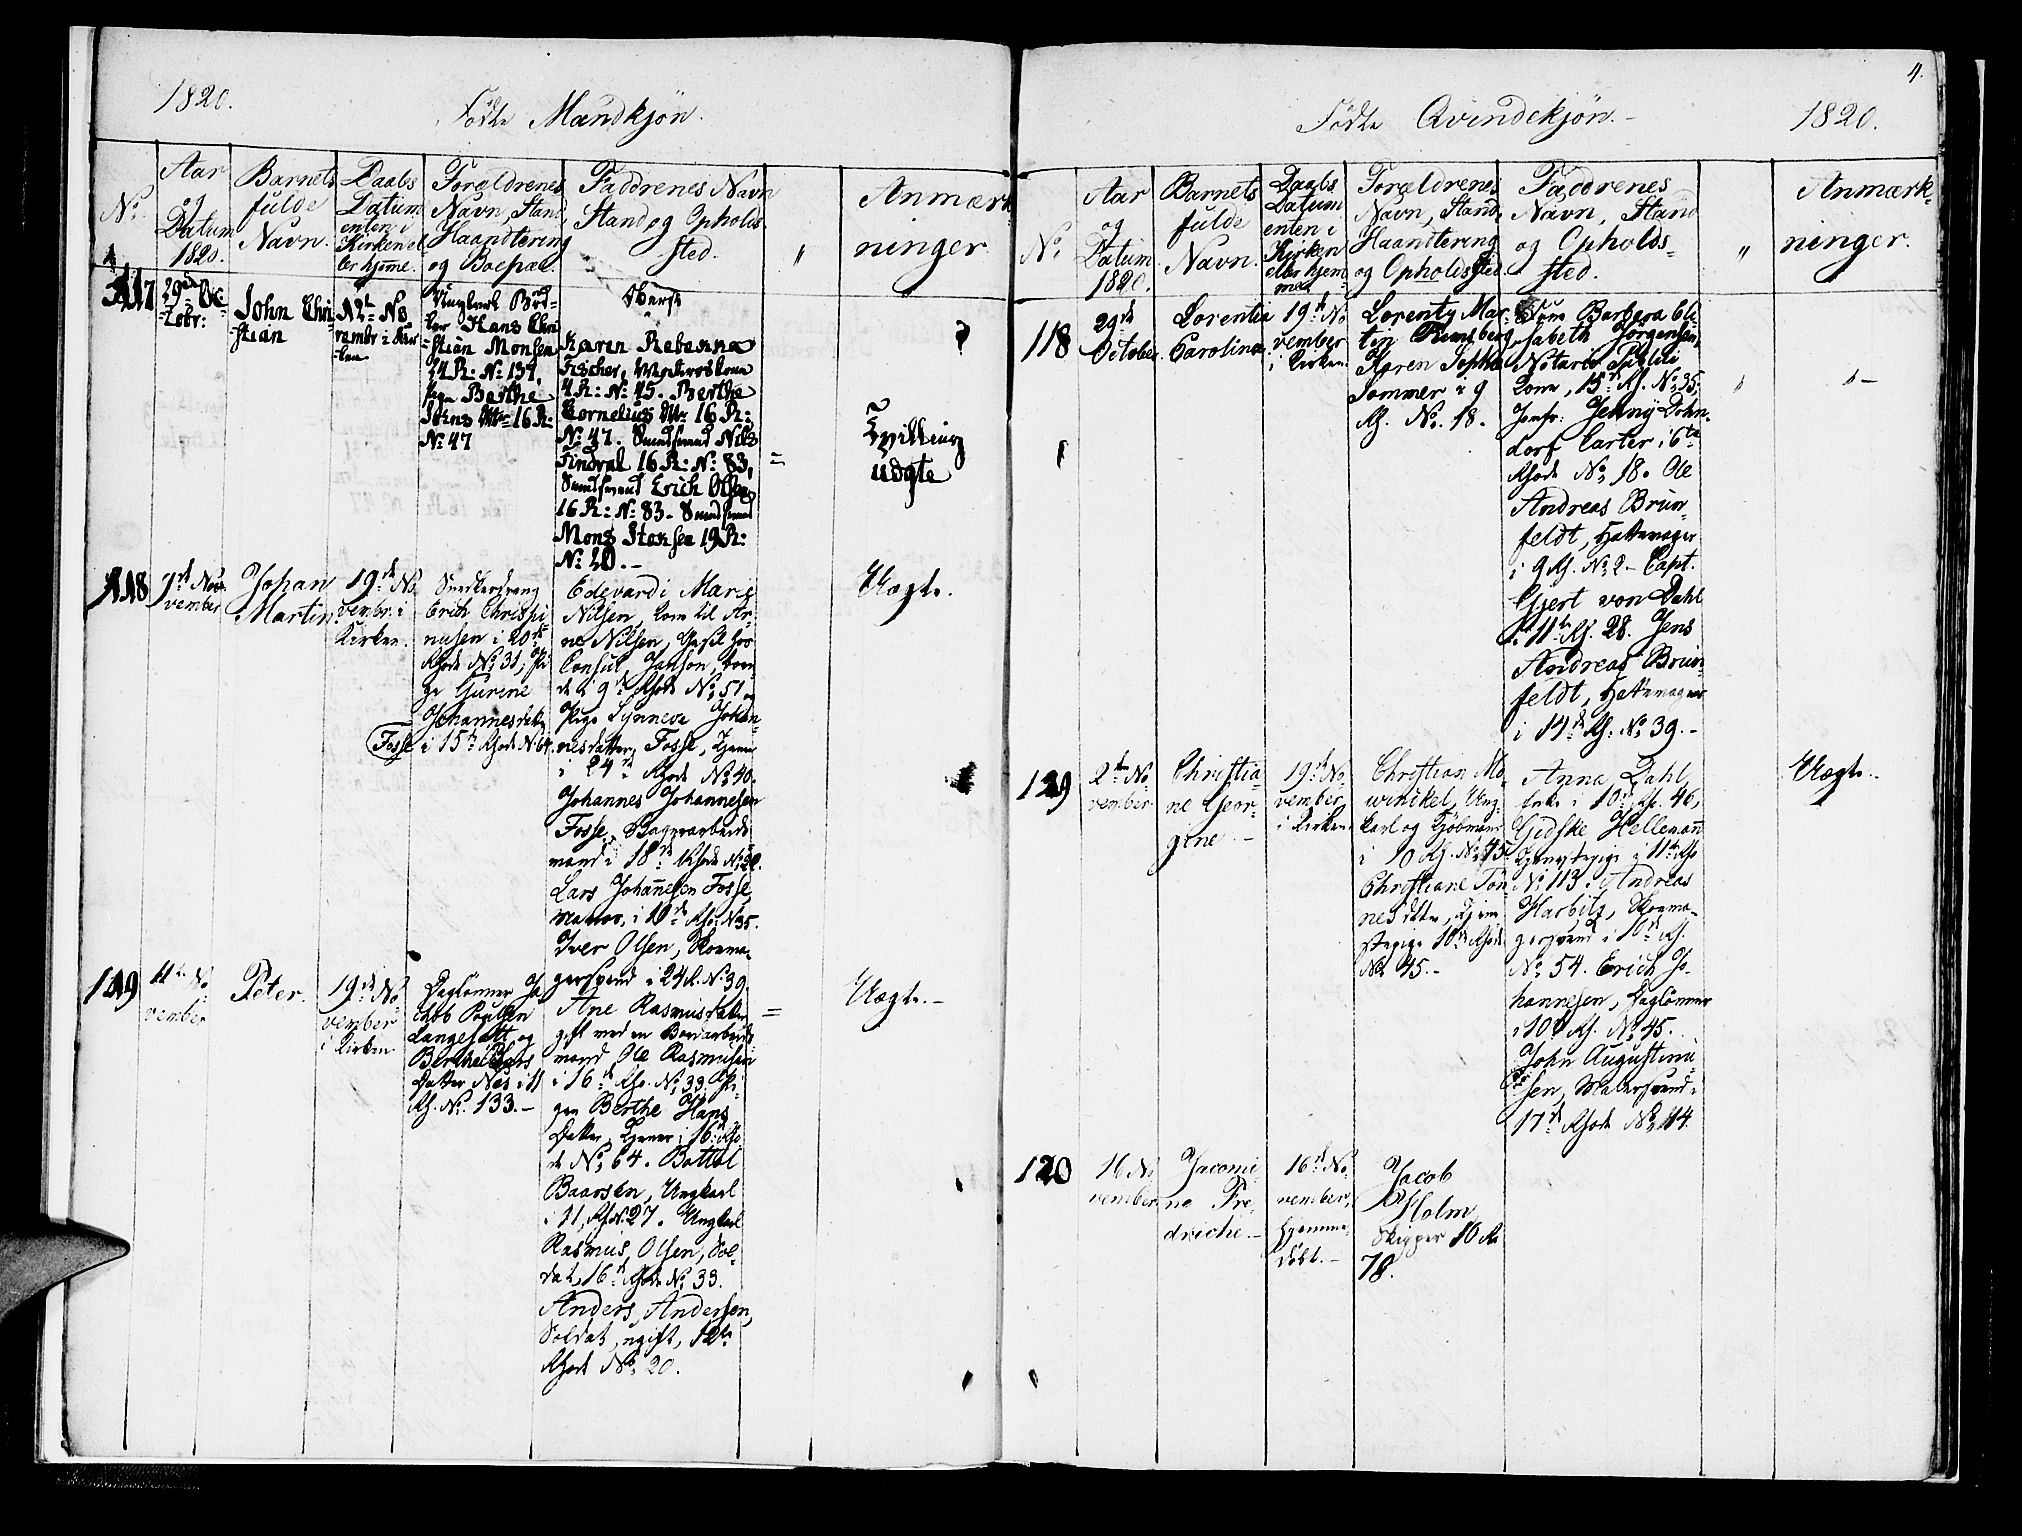 1820.
Födte Mandkjön.
No.
Aar
og
Datum
1820.
Barnets
fulde
Navn.
Daabs
Datum
enten i
Kirken el
ler hjeme.
Forældrenes
Navn, Stand
Haandtering
og Boepæl.
Faddrenes Navn
Stand og Opholds
sted.
"
Anmærk
ninger.
117
29de Oc
tobr:
John Chri
stian
12te No
vembr i Kir
ken
Hans Chri
stian Monsen
24 R: No 134,
Pige Berthe
16 R:
No 47
Karen Rebekka
Fischer,
4 R: No 45. Berthe
Cornelius Mr 16 R:
No 47. Nils
Findral 16 R: No 83,
Erich Olsen
16 R: No 83.
Mons 19 R:
No 20.-
=
Tvilling
uægte
118
7de No
vember
Johan
Martin
19de No
vembr. i
Kirken.
Erich Christi
nusen i 20de
Rhode No 31, Pi
ge Gurine
Johannesdatter
Fosse i 15de Rhode No 64.
Edevardi Marie
Nilsen, Kone til Ar
ne Nilsen, hos
Consul Janson,
de i 9de Rhode No 51 og
Pige Synneve Johan
nesdatter Fosse, tjener
i 24de Rhode No 40.
Johannes Johannesen
Fosse,
mand i 18de Rhode No
Lars Johannesen Fosse
i 10de Rhode No 35.
Iver Olsen, Skoma
gersvend i 24 R. No 39.
Uægte.
119
11te No
vember
Peter.
19de No
vember
i Kirken.
Daglønner Ja
chob Poulsen
Langesæt og
Berthe
Datter Næs i 11
Rh. No. 133.-
Ane Rasmusdatter
gift med en Bordarbeids
mand Ole Rasmusen
i 16de Rho. No 33. Pi
gen Berthe Hans
Datter, tjener i 16 Rho
de No 64. Bottol
Baarsen, Ungkarl
i 11, Rh No 27. Ungkarl
Rasmus Olsen, Sol
dat, 16de Rhode No 33.
Anders Andersen,
Soldat, ugift, 12te
Rhode No 20.
=
Uægte.-
4.
Födte Qvindekjön.-
1820.
No.
Aar
og
Datum
1820.
Barnets
fulde
Navn.
Daabs
Datum
enten i
Kirken
eller hjem
me
Forældrenes
Navn, Stand
Haandtering
og Opholdssted.
Faddrenes
Navn, Stand
og Opholds-
sted.
"
Anmærk-
ninger.
118
29de
October
Lorentia
Carolina
19de No
vember
i Kirken.
Lorentz Mar
tin
Karen Sophie
Sommer i 9
Rh. No. 18.
Barbara Eli
sabeth Jörgensen,
Notarius Publici
Kone, 15de Rh. No 35,
Jomfr: Jenny Dohn
dorf Carter i 6te
Rhode No 18. Ole
Andreas Brun
feldt, Hattemager
i 9 Rh. No 2- Capt.
Gjert von Dahl
i 11te Rh. 28. Jens
Andreas Brun
feldt, Hattemager
i 14de Rh. No 39.-
119
2den No
vember
Christia
ne Geor-
gine.-
19de No
vember
i Kirken.
Christian Mo
winkel, Ung
karl og Kjöbmand
i 10 Rh. No 45
Christiane Tön
nesdatter, Tjene
stepige 10de Rhode
No 45.-
Anna Dahl,
Enke i 10de Rh. 46,
Gidske Hellemann
Tjenestepige i 11te Rho
No 113. Andreas
Harbitz, Skoma-
gersvend i 10de Rh.
No 54. Erich Jo-
hannesen, Daglønner
i 10de Rh. No 45.
John Augustinu
sen, Malersvend i
17de Rhode No 114.
Uægte.-
120
16 No
vember.
Jacomi
ne Fre-
driche.-
16de No-
vember,
hjemme
döbt.-
Jacob
Holm
Skipper 10 R.
78.